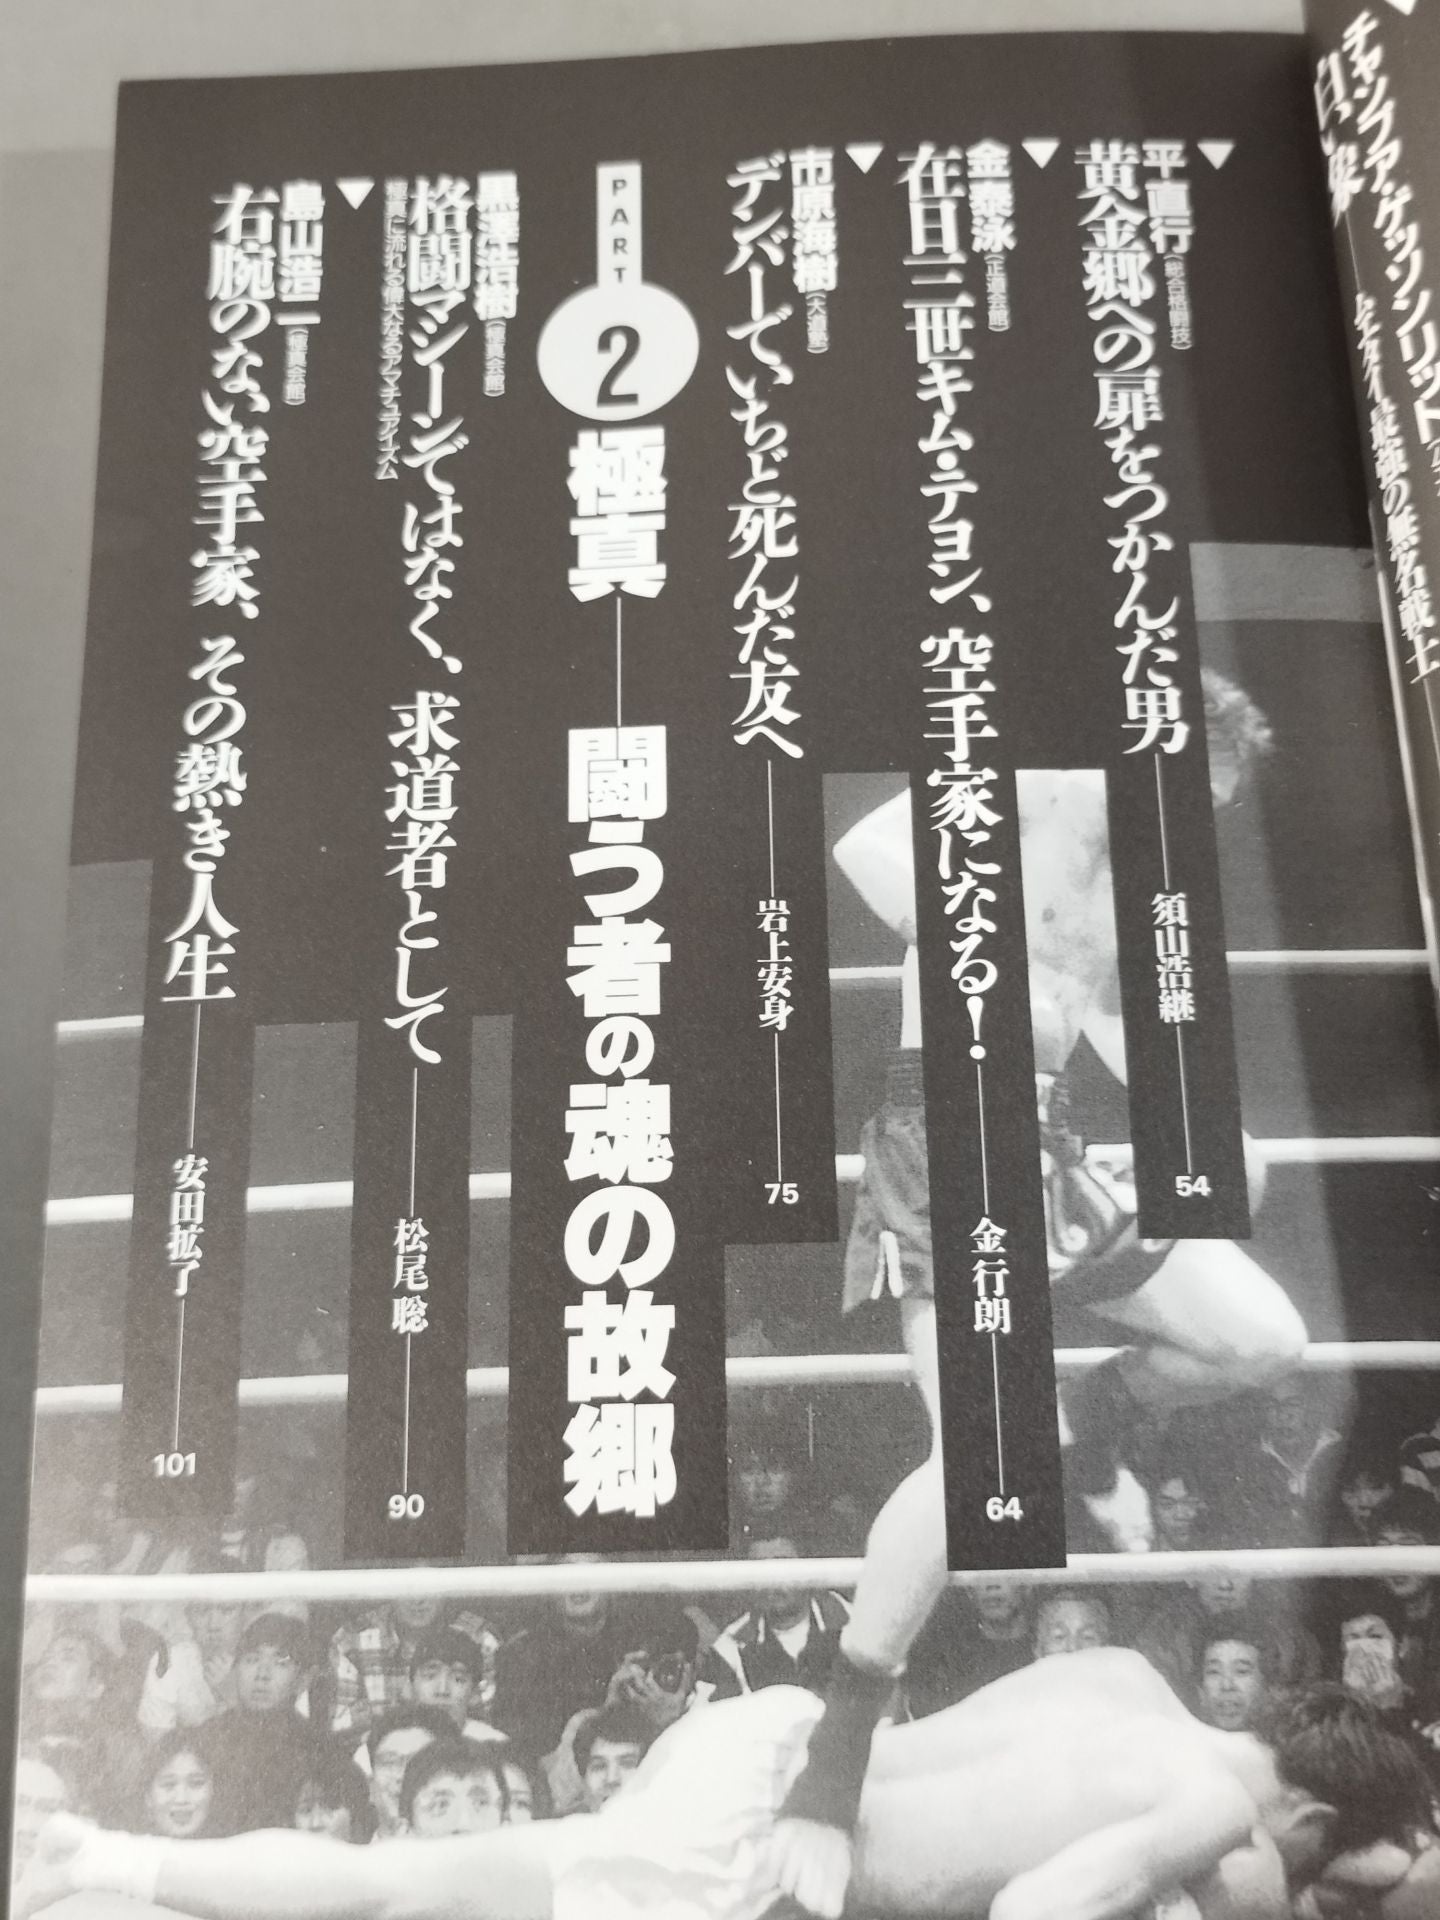 チャンプア・ゲッソンリット
白い象
ムエタイ最強の無名戦士
▼
平 直行(総合格闘技)
黄金郷への扉をつかんだ男
須山浩継
54
▼
金 泰泳(正道会館)
在日三世キム・テヨン、空手家になる!
金 行朗
64
▼
市原海樹(大道塾)
デンバーでいちど死んだ友へ
岩上安身
75
PART
2
極真――闘う者の魂の故郷
黒澤浩樹(極真会館)
格闘マシーンではなく、求道者として
極真に流れる偉大なるアマチュアイズム
松尾 聡
90
▼
島山浩二(極真会館)
右腕のない空手家、その熱き人生
安田拡了
101